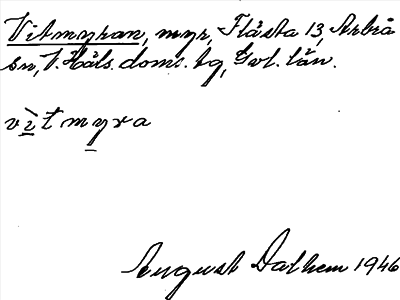 Vitmyran, myr, Flästa 13, Arbrå
sn, V. Häls. doms. tg, Gvl. län.
vìt myra
August Dalhem 1946